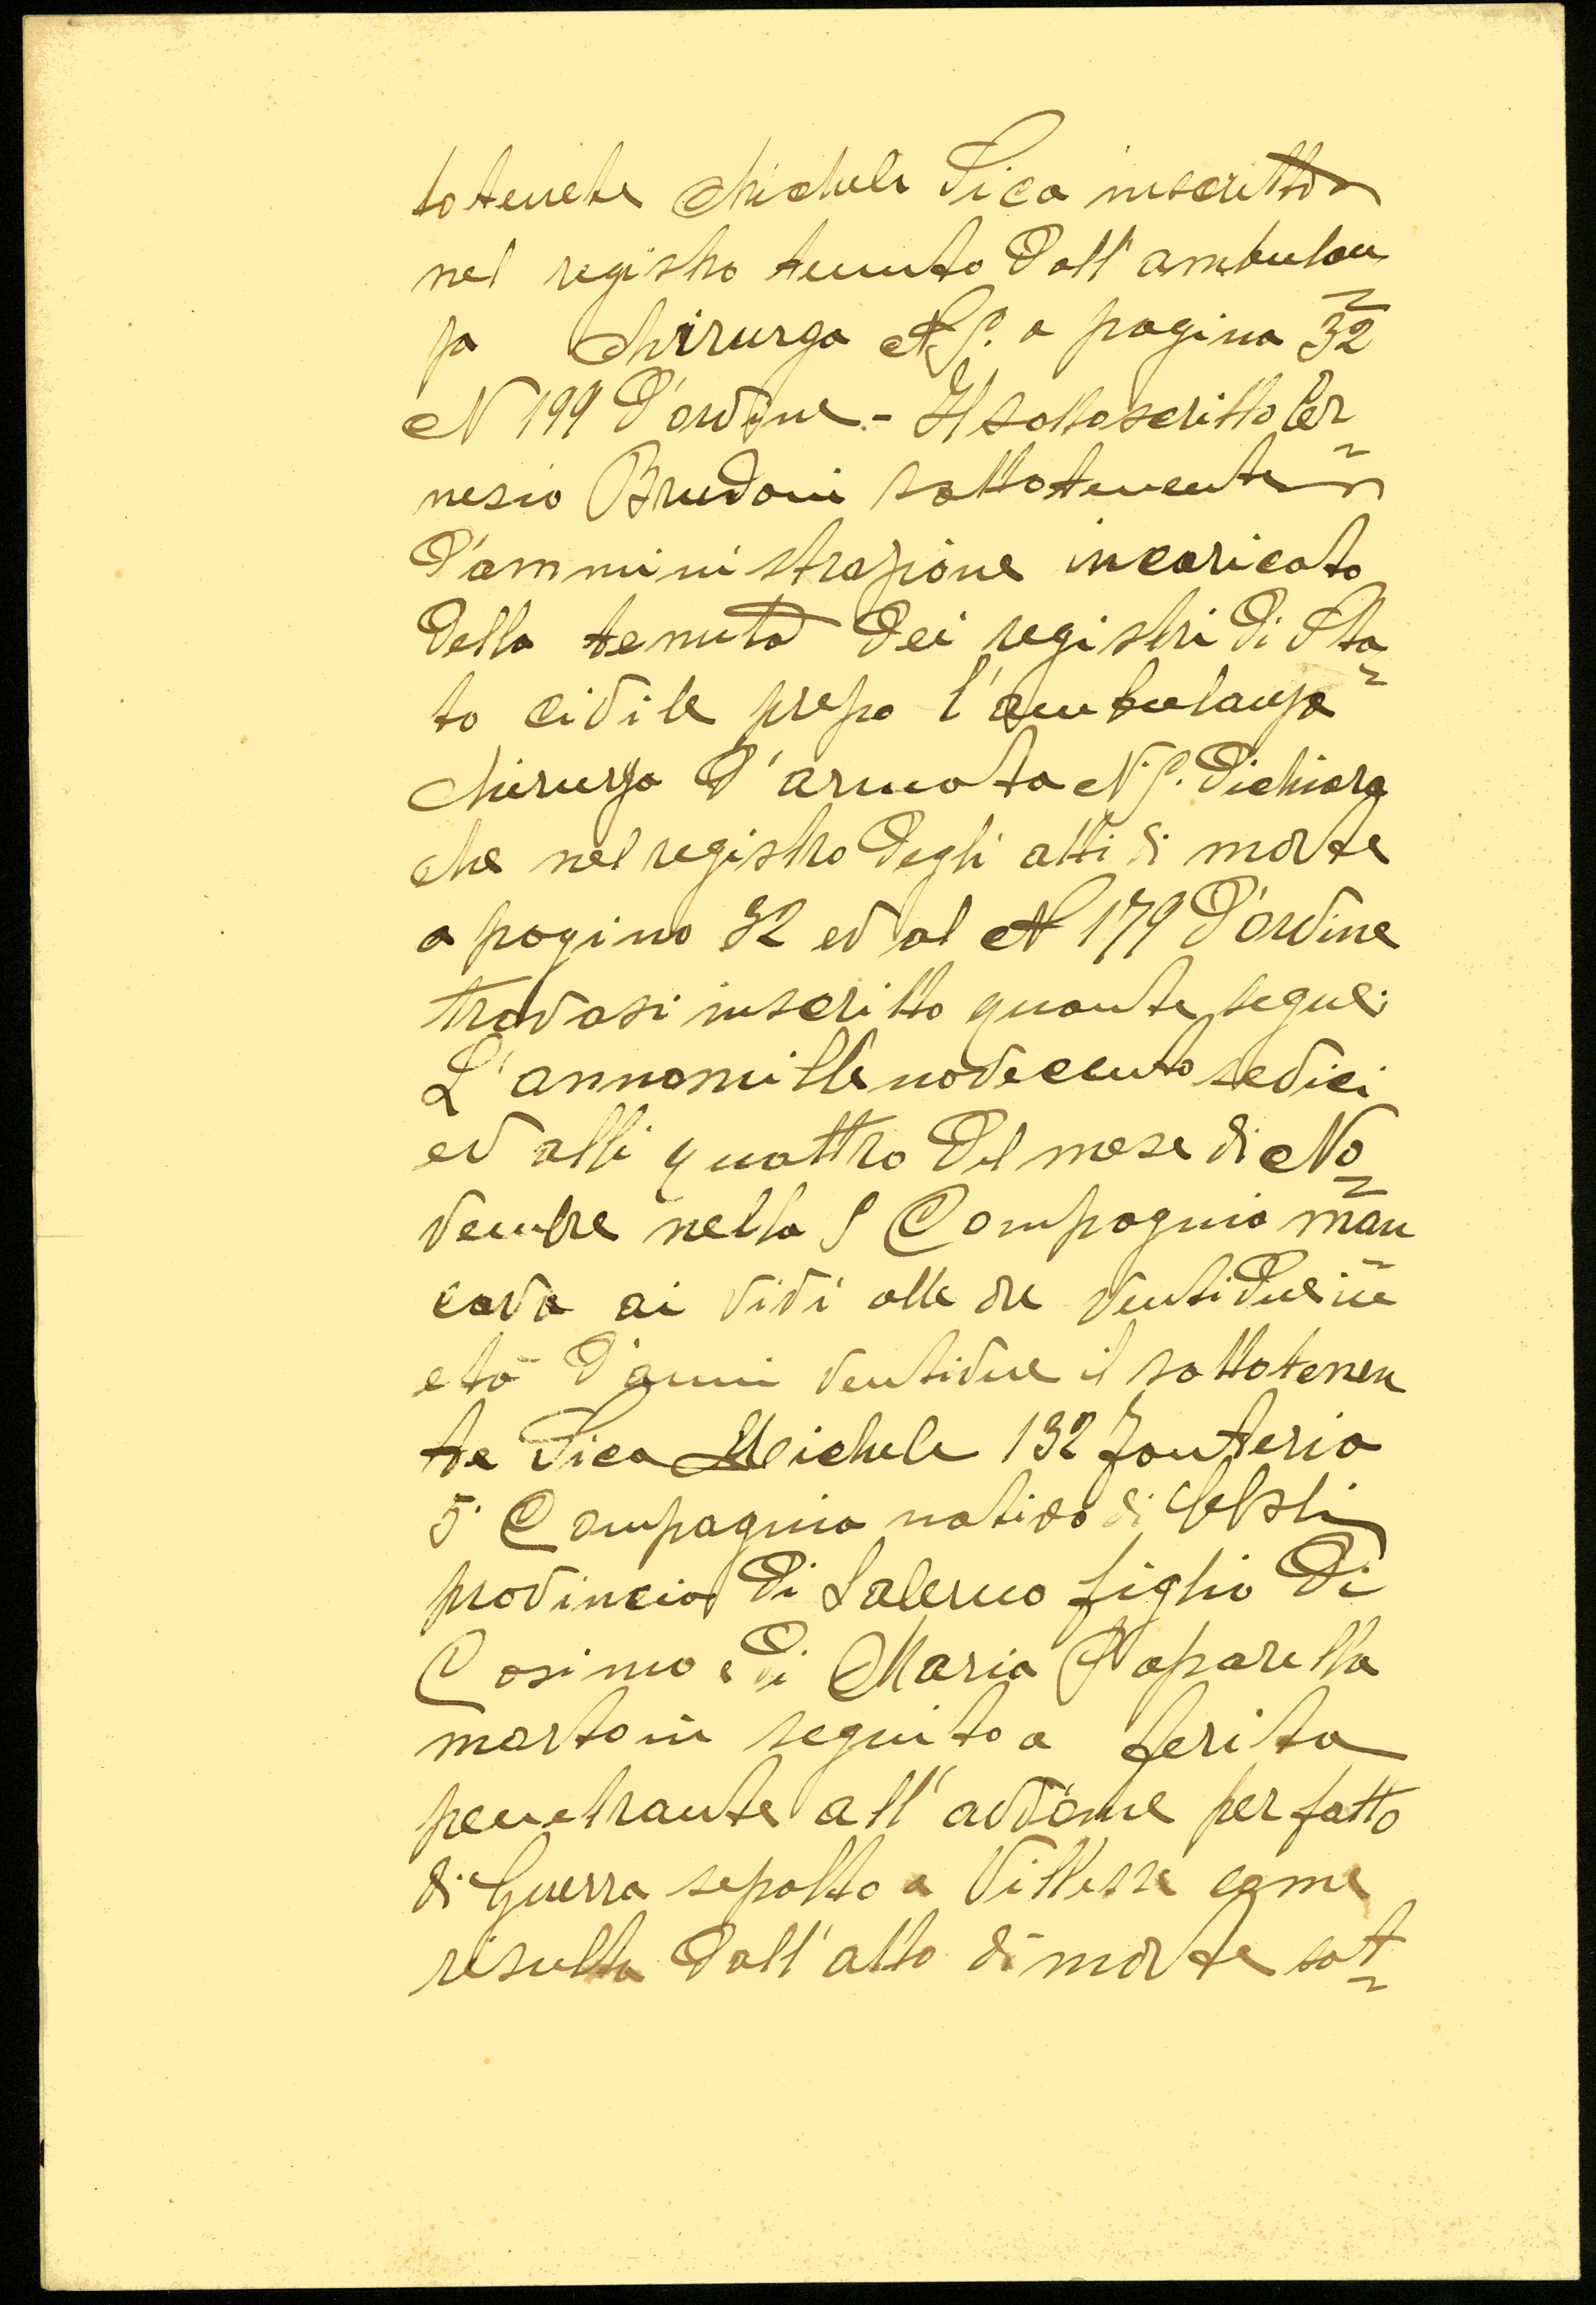 totenete Michele Pica inscritto
nel registro tenuto dall'ambulan
za chirurga N 5. a pagina 32
N 199 d'ordine - Il sottoscritto Cer
nesio Brudoni sottotenente
d'amministrazione incaricato
della tenuta dei registri di Sta
to civile presso l'ambulanza
chirurga d'armata N 5. dichiara
che nel registro degli atti di morte
a pagina 32 ed al N 179 d'ordine
trovasi inscritto quante segue:
L'annomille novecento sedici
ed alli quattro del mese di No
vembre nella 5 Compagnia man
cava ai vivi alle ore ventidue in
età d'anni ventidue il sottotenen
te Pica Michele 132 Fanteria
5 Compagnia nativo di
provincia di Salerno figlio di
Cosimo e di Maria Paparella
morto in seguito a ferita
penetrante all'addome per fatto
di Guerra sepolto a Villesse come
risulta dall'atto di morte sot